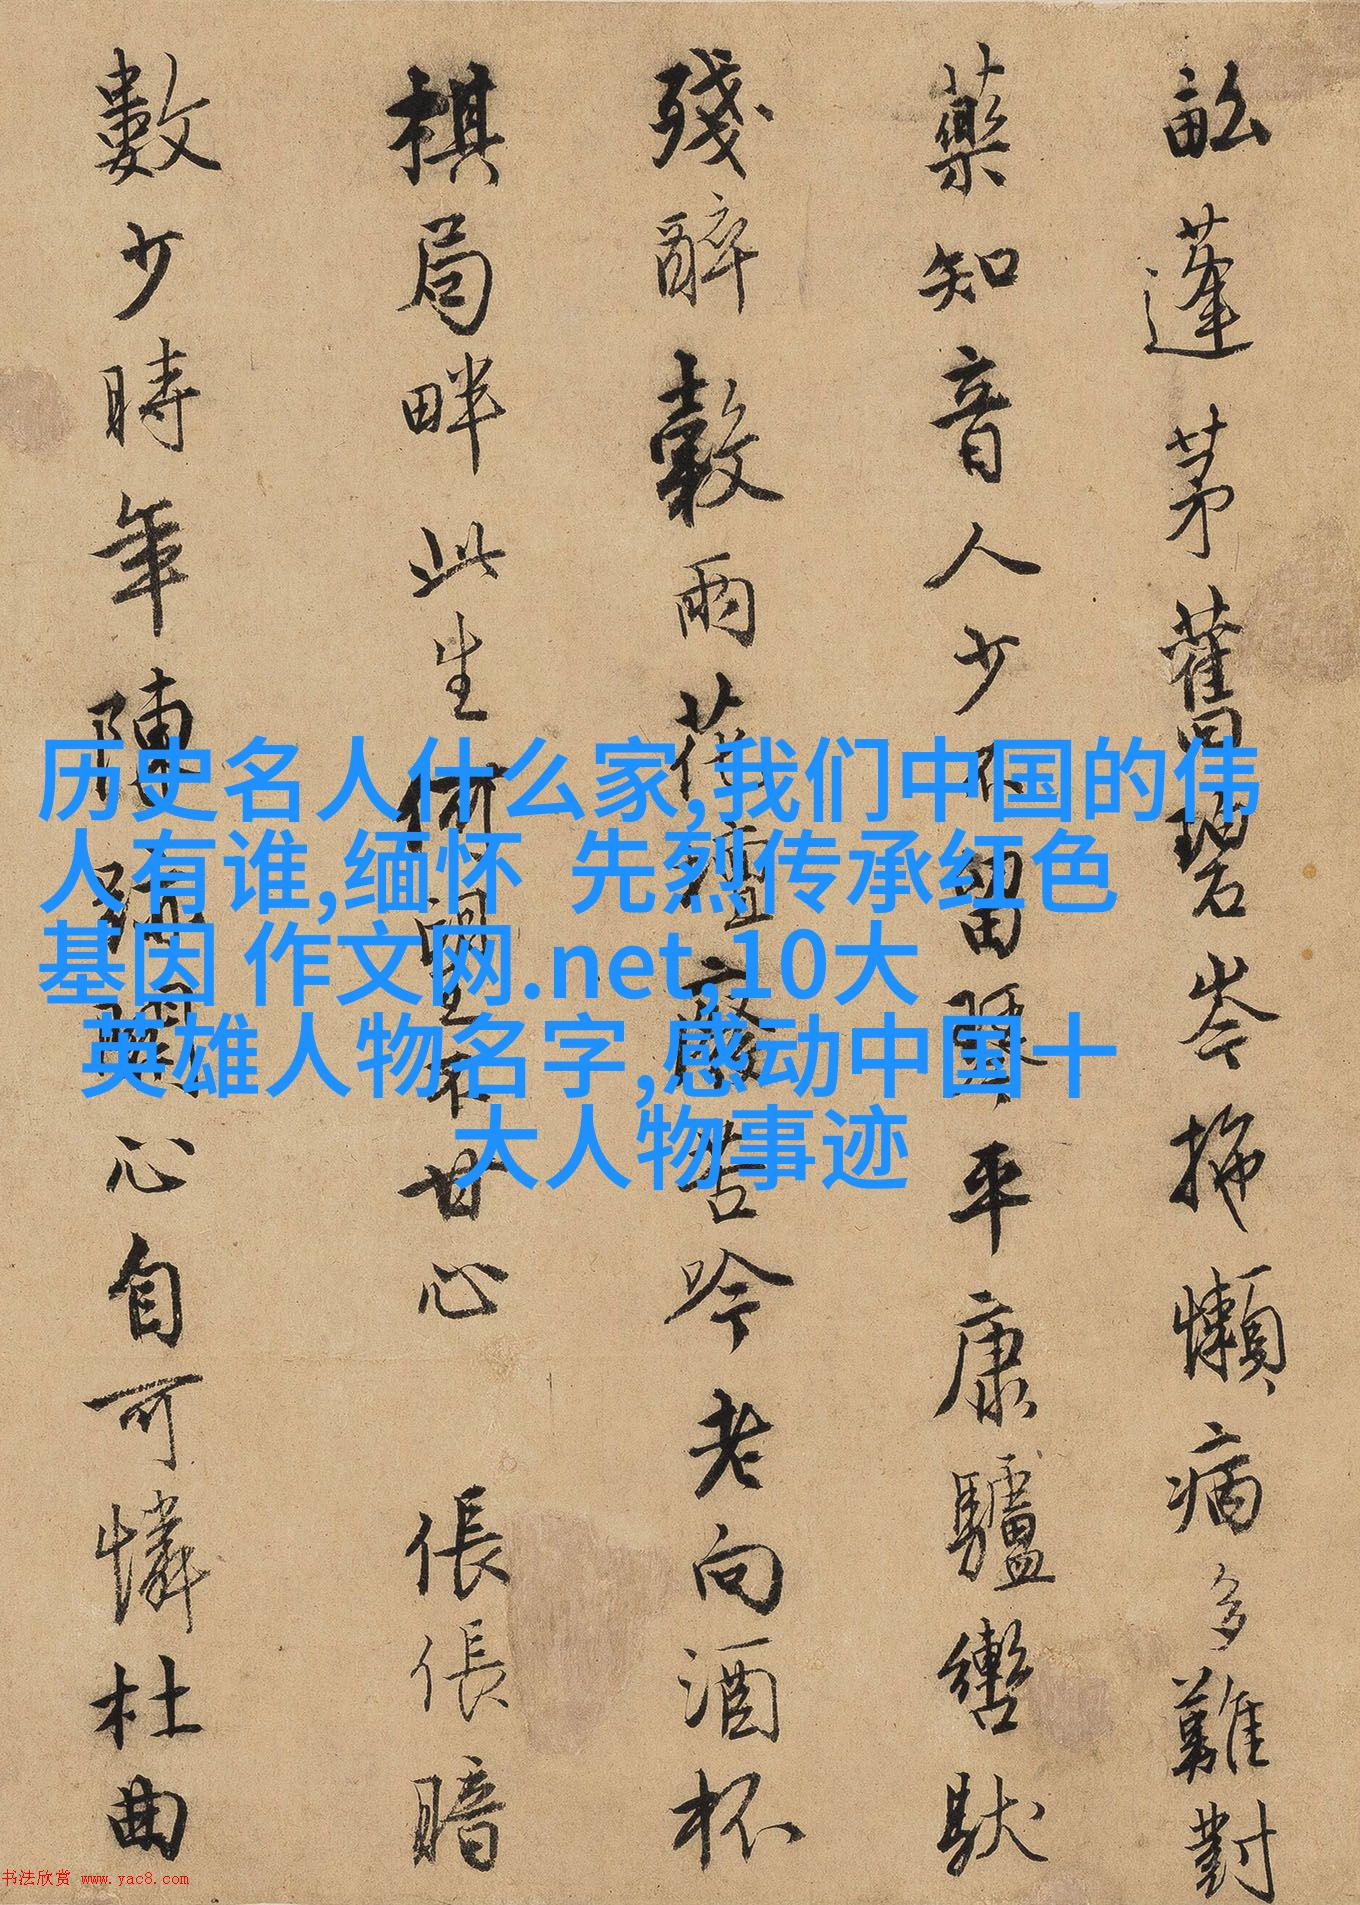 畝蓬茅舊碧岑拖懶病多難對
藥知音人少不留琴平康驢轡馱
殘醉穀雨花壇廢苦吟老向酒杯
棋局畔此生何望不甘心 倀倀暗
數少時年陳 心自可憐杜曲
历史名人什么家,我们中国的伟
人有谁,缅怀 先烈传承红色
基因 作文网.net,10大
英雄人物名字,感动中国十
大人物事迹
书法欣赏 www.yac8.com